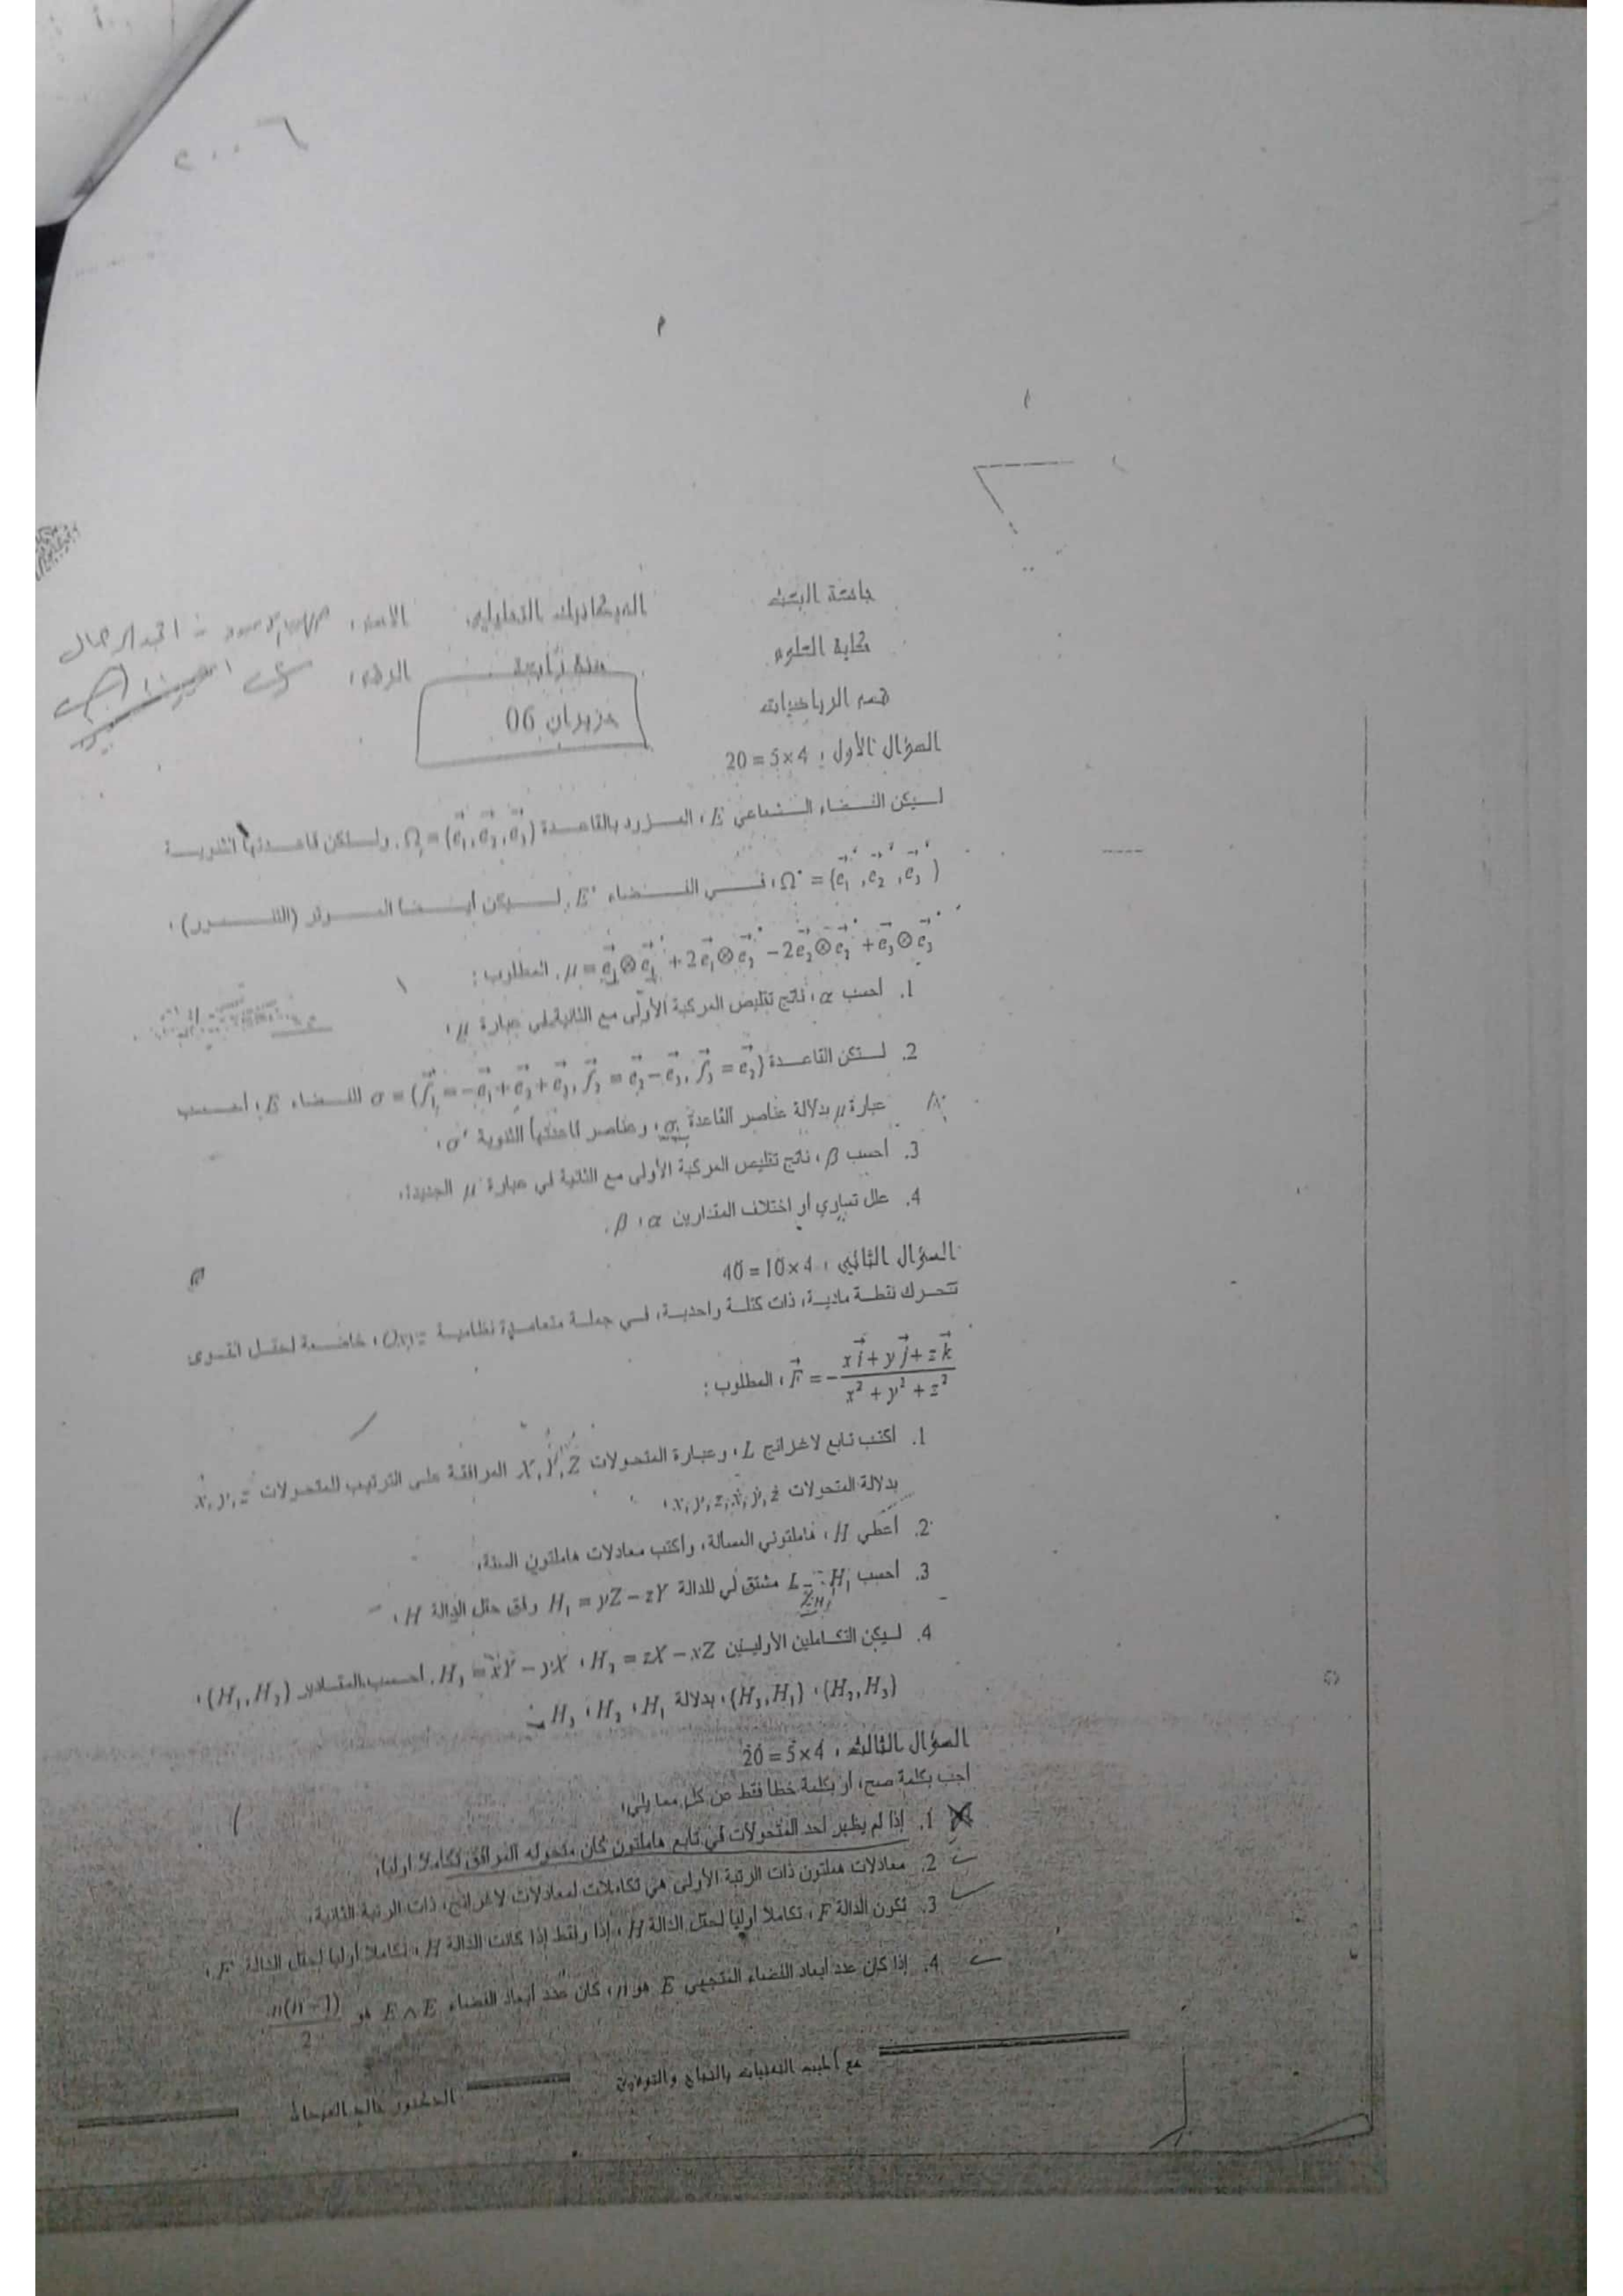 ٢٠٠٦
جامعة البعث الميكانيك التحليلي الاسم:
كلية العلوم سنة رابعة الرقم:
قسم الرياضيات حزيران 06
السؤال الأول: 4×5=20
ليكن الفضاء الشعاعي E، المزود بالقاعدة Ω = (e⃗₁, e⃗₂, e⃗₃)، ولتكن قاعدتها الثنوية
Ω* = (e⃗₁*, e⃗₂*, e⃗₃*)، في الفضاء E*. ليكن أيضا الموتر (التنسور):
μ = e⃗₁⊗e⃗₁* + 2e⃗₁⊗e⃗₃* − 2e⃗₂⊗e⃗₂* + e⃗₃⊗e⃗₃*. المطلوب:
1. أحسب α، ناتج تقليص المركبة الأولى مع الثانية في عبارة μ،
2. لتكن القاعدة σ = (f⃗₁ = −e⃗₁ + e⃗₂ + e⃗₃, f⃗₂ = e⃗₂ − e⃗₃, f⃗₃ = e⃗₃) للفضاء E، أحسب
عبارة μ بدلالة عناصر القاعدة σ، وعناصر قاعدتها الثنوية σ*،
3. أحسب β، ناتج تقليص المركبة الأولى مع الثانية في عبارة μ الجديدة،
4. علل تساوي أو اختلاف المقدارين α، β.
السؤال الثاني: 4×10=40
تتحرك نقطة مادية، ذات كتلة واحدية، في جملة متعامدة نظامية Oxyz، خاضعة لحقل القوى
F⃗ = −(x i⃗ + y j⃗ + z k⃗)/(x² + y² + z²)، المطلوب:
1. اكتب تابع لاغرانج L، وعبارة المتحولات X, Y, Z المرافقة على الترتيب للمتحولات x, y, z
بدلالة المتحولات x, y, z, ẋ, ẏ, ż،
2. أعطي H، هاملتوني المسألة، وأكتب معادلات هاملتون الستة،
3. أحسب L H₁ مشتق لي للدالة H₁ = yZ − zY وفق حقل الدالة H،
4. ليكن التكاملين الأوليين H₂ = zX − xZ، H₃ = xY − yX. أحسب المقادير (H₁, H₂)،
(H₂, H₃)، (H₃, H₁)، بدلالة H₁، H₂، H₃
السؤال الثالث: 4×5=20
أجب بكلمة صح، أو بكلمة خطأ فقط عن كل مما يلي:
1. إذا لم يظهر أحد المتحولات في تابع هاملتون كان متحوله المرافق تكاملا أوليا،
2. معادلات هملتون ذات الرتبة الأولى هي تكاملات لمعادلات لاغرانج، ذات الرتبة الثانية،
3. تكون الدالة F، تكاملا أوليا لحقل الدالة H، إذا وفقط إذا كانت الدالة H، تكاملا أوليا لحقل الدالة F،
4. إذا كان عدد أبعاد الفضاء المتجهي E هو n، كان عدد أبعاد الفضاء E ∧ E هو n(n−1)/2
مع أطيب التمنيات بالنجاح والتوفيق الدكتور خالد